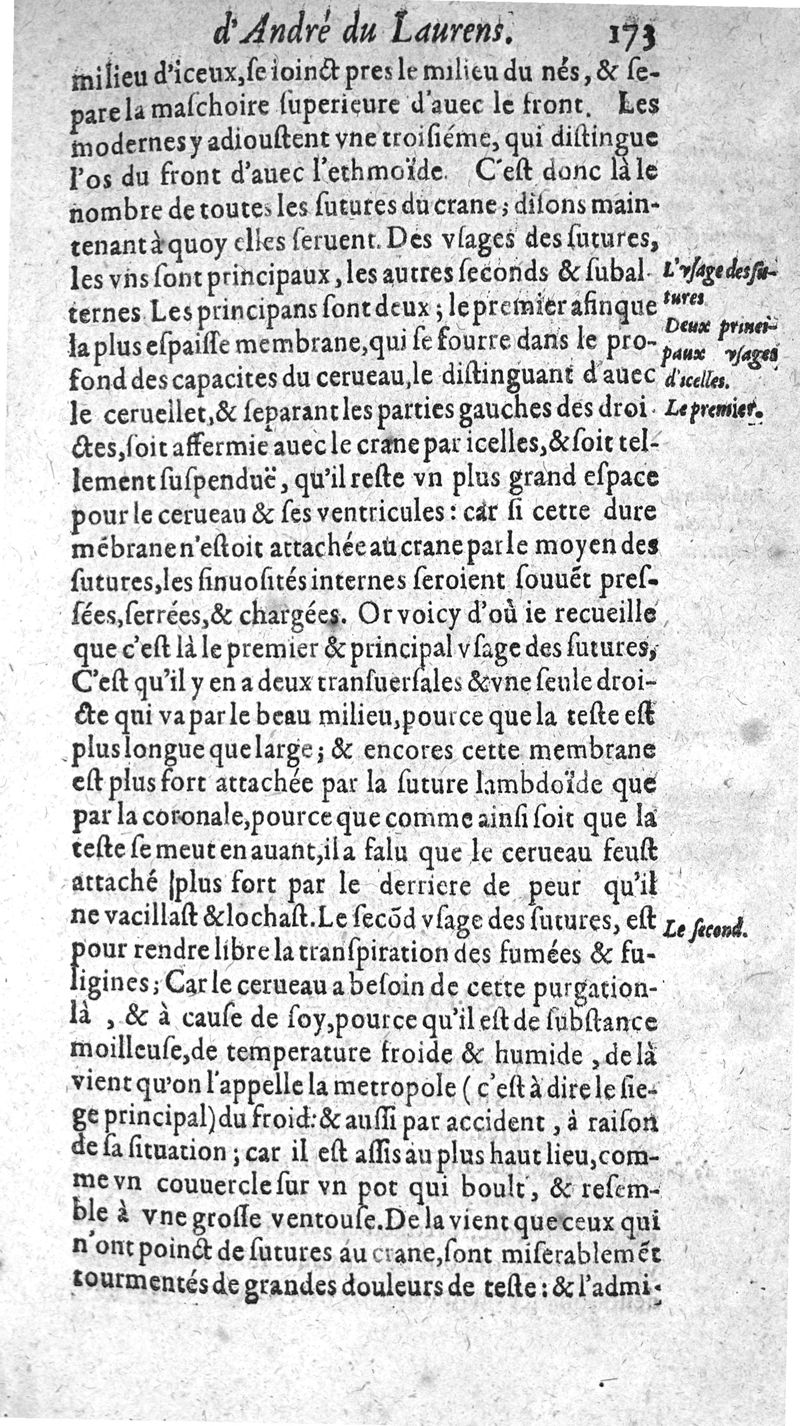 d'André du Laurens. 173
milieu d'iceux,ſe ioinct pres le milieu du nés, & ſe-
pare la maſchoire ſuperieure d'auec le front. Les
modernes y adiouſtent vne troiſiéme, qui diſtingue
l'os du front d'auec l'ethmoïde. C'eſt donc là le
nombre de toutes les ſutures du crane; diſons main-
tenant à quoy elles ſeruent. Des vſages des ſutures,
les vns ſont principaux, les autres ſeconds & ſubal-
L'vſage des ſu-
tures.
ternes. Les principans ſont deux; le premier afin que
Deux princi-
paux vſages
d'icelles.
la plus eſpaiſſe membrane, qui ſe fourre dans le pro-
fond des capacites du cerueau, le diſtinguant d'auec
le ceruellet, & ſeparant les parties gauches des droi-
Le premier.
ctes, ſoit affermie auec le crane par icelles, & ſoit tel-
lement ſuſpenduë, qu'il reſte vn plus grand eſpace
pour le cerueau & ſes ventricules: car ſi cette dure
mẽbrane n'eſtoit attachée au crane par le moyen des
ſutures, les ſinuoſités internes ſeroient ſouuẽt preſ-
ſées, ſerrées, & chargées. Or voicy d'où ie recueille
que c'eſt là le premier & principal vſage des ſutures,
C'eſt qu'il y en a deux tranſuerſales & vne ſeule droi-
cte qui va par le beau milieu, pource que la teſte eſt
plus longue que large; & encores cette membrane
eſt plus fort attachée par la ſuture lambdoïde que
par la coronale, pource que comme ainſi ſoit que la
teſte ſe meut en auant, il a falu que le cerueau feuſt
attaché plus fort par le derriere de peur qu'il
ne vacillaſt & lochaſt. Le ſecõd vſage des ſutures, eſt
Le ſecond.
pour rendre libre la tranſpiration des fumées & fu-
ligines; Car le cerueau a beſoin de cette purgation-
là , & à cauſe de ſoy, pource qu'il eſt de ſubſtance
moilleuſe, de temperature froide & humide , de là
vient qu'on l'appelle la metropole ( c'eſt à dire le ſie-
ge principal) du froid: & auſſi par accident , à raiſon
de ſa ſituation ; car il eſt aſſis au plus haut lieu, com-
me vn couuercle ſur vn pot qui boult, & reſem-
ble à vne groſſe ventouſe. De la vient que ceux qui
n'ont poinct de ſutures au crane, ſont miſerablemẽt
tourmentés de grandes douleurs de teſte: & l'admi-